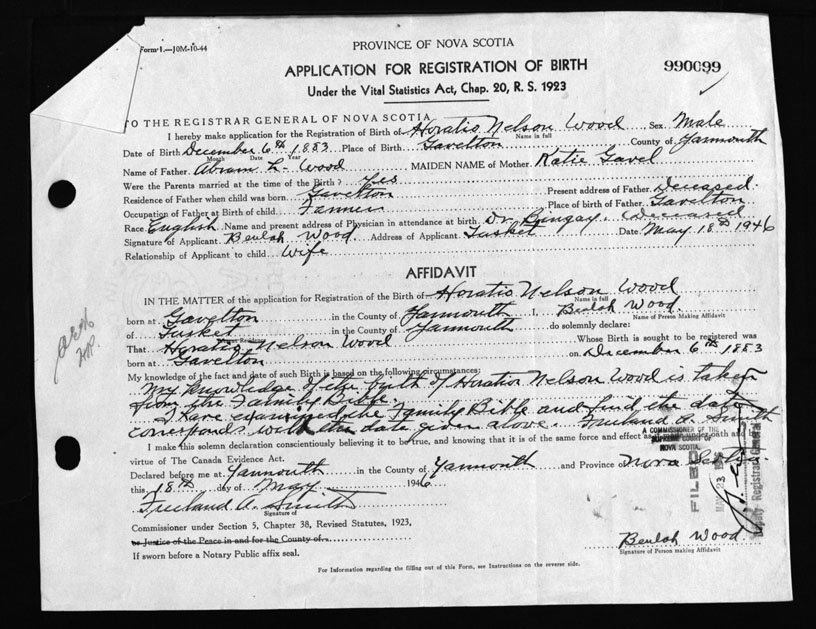 Form 1.—10M-10-44
PROVINCE OF NOVA SCOTIA
APPLICATION FOR REGISTRATION OF BIRTH
990099
Under the Vital Statistics Act, Chap. 20, R. S. 1923
TO THE REGISTRAR GENERAL OF NOVA SCOTIA
I hereby make application for the Registration of Birth of Horatio Nelson Wood Sex Male
Name in full
Date of Birth December 6th 1883 Place of Birth Gavelton County of Yarmouth
Month Date Year
Name of Father Abram L. Wood MAIDEN NAME of Mother Katie Gavel
Were the Parents married at the time of the Birth? Yes
Residence of Father when child was born Gavelton Present address of Father Deceased.
Occupation of Father at Birth of child Farmer Place of birth of Father Gavelton
Race English Name and present address of Physician in attendance at birth Dr. Bingay. (Deceased
Signature of Applicant Beulah Wood Address of Applicant Tusket Date May 18th 1946
Relationship of Applicant to child Wife
AFFIDAVIT
IN THE MATTER of the application for Registration of the Birth of Horatio Nelson Wood
Name in full
born at Gavelton in the County of Yarmouth I, Beulah Wood.
Name of Person Making Affidavit
of Tusket in the County of Yarmouth do solemnly declare:
Residence
That Horatio Nelson Wood Whose Birth is sought to be registered was
born at Gavelton on December 6th 1883
My knowledge of the fact and date of such Birth is based on the following circumstances:
My knowledge of the birth of Horatio Nelson Wood is taken
from the Family Bible.
I have examined the Family Bible and find the date
corresponds with the date given above. Freeland A. Smith
A COMMISSIONER OF THE
SUPREME COURT OF
NOVA SCOTIA
I make this solemn declaration conscientiously believing it to be true, and knowing that it is of the same force and effect as under oath and
virtue of The Canada Evidence Act.
Declared before me at Yarmouth in the County of Yarmouth and Province of Nova Scotia
this 18th day of May 1946
Freeland A. Smith
Signature of
Commissioner under Section 5, Chapter 38, Revised Statutes, 1923,
or Justice of the Peace in and for the County of
If sworn before a Notary Public affix seal.
Beulah Wood
Signature of Person making Affidavit
FILED
Deputy Registrar General
For Information regarding the filling out of this Form, see Instructions on the reverse side.